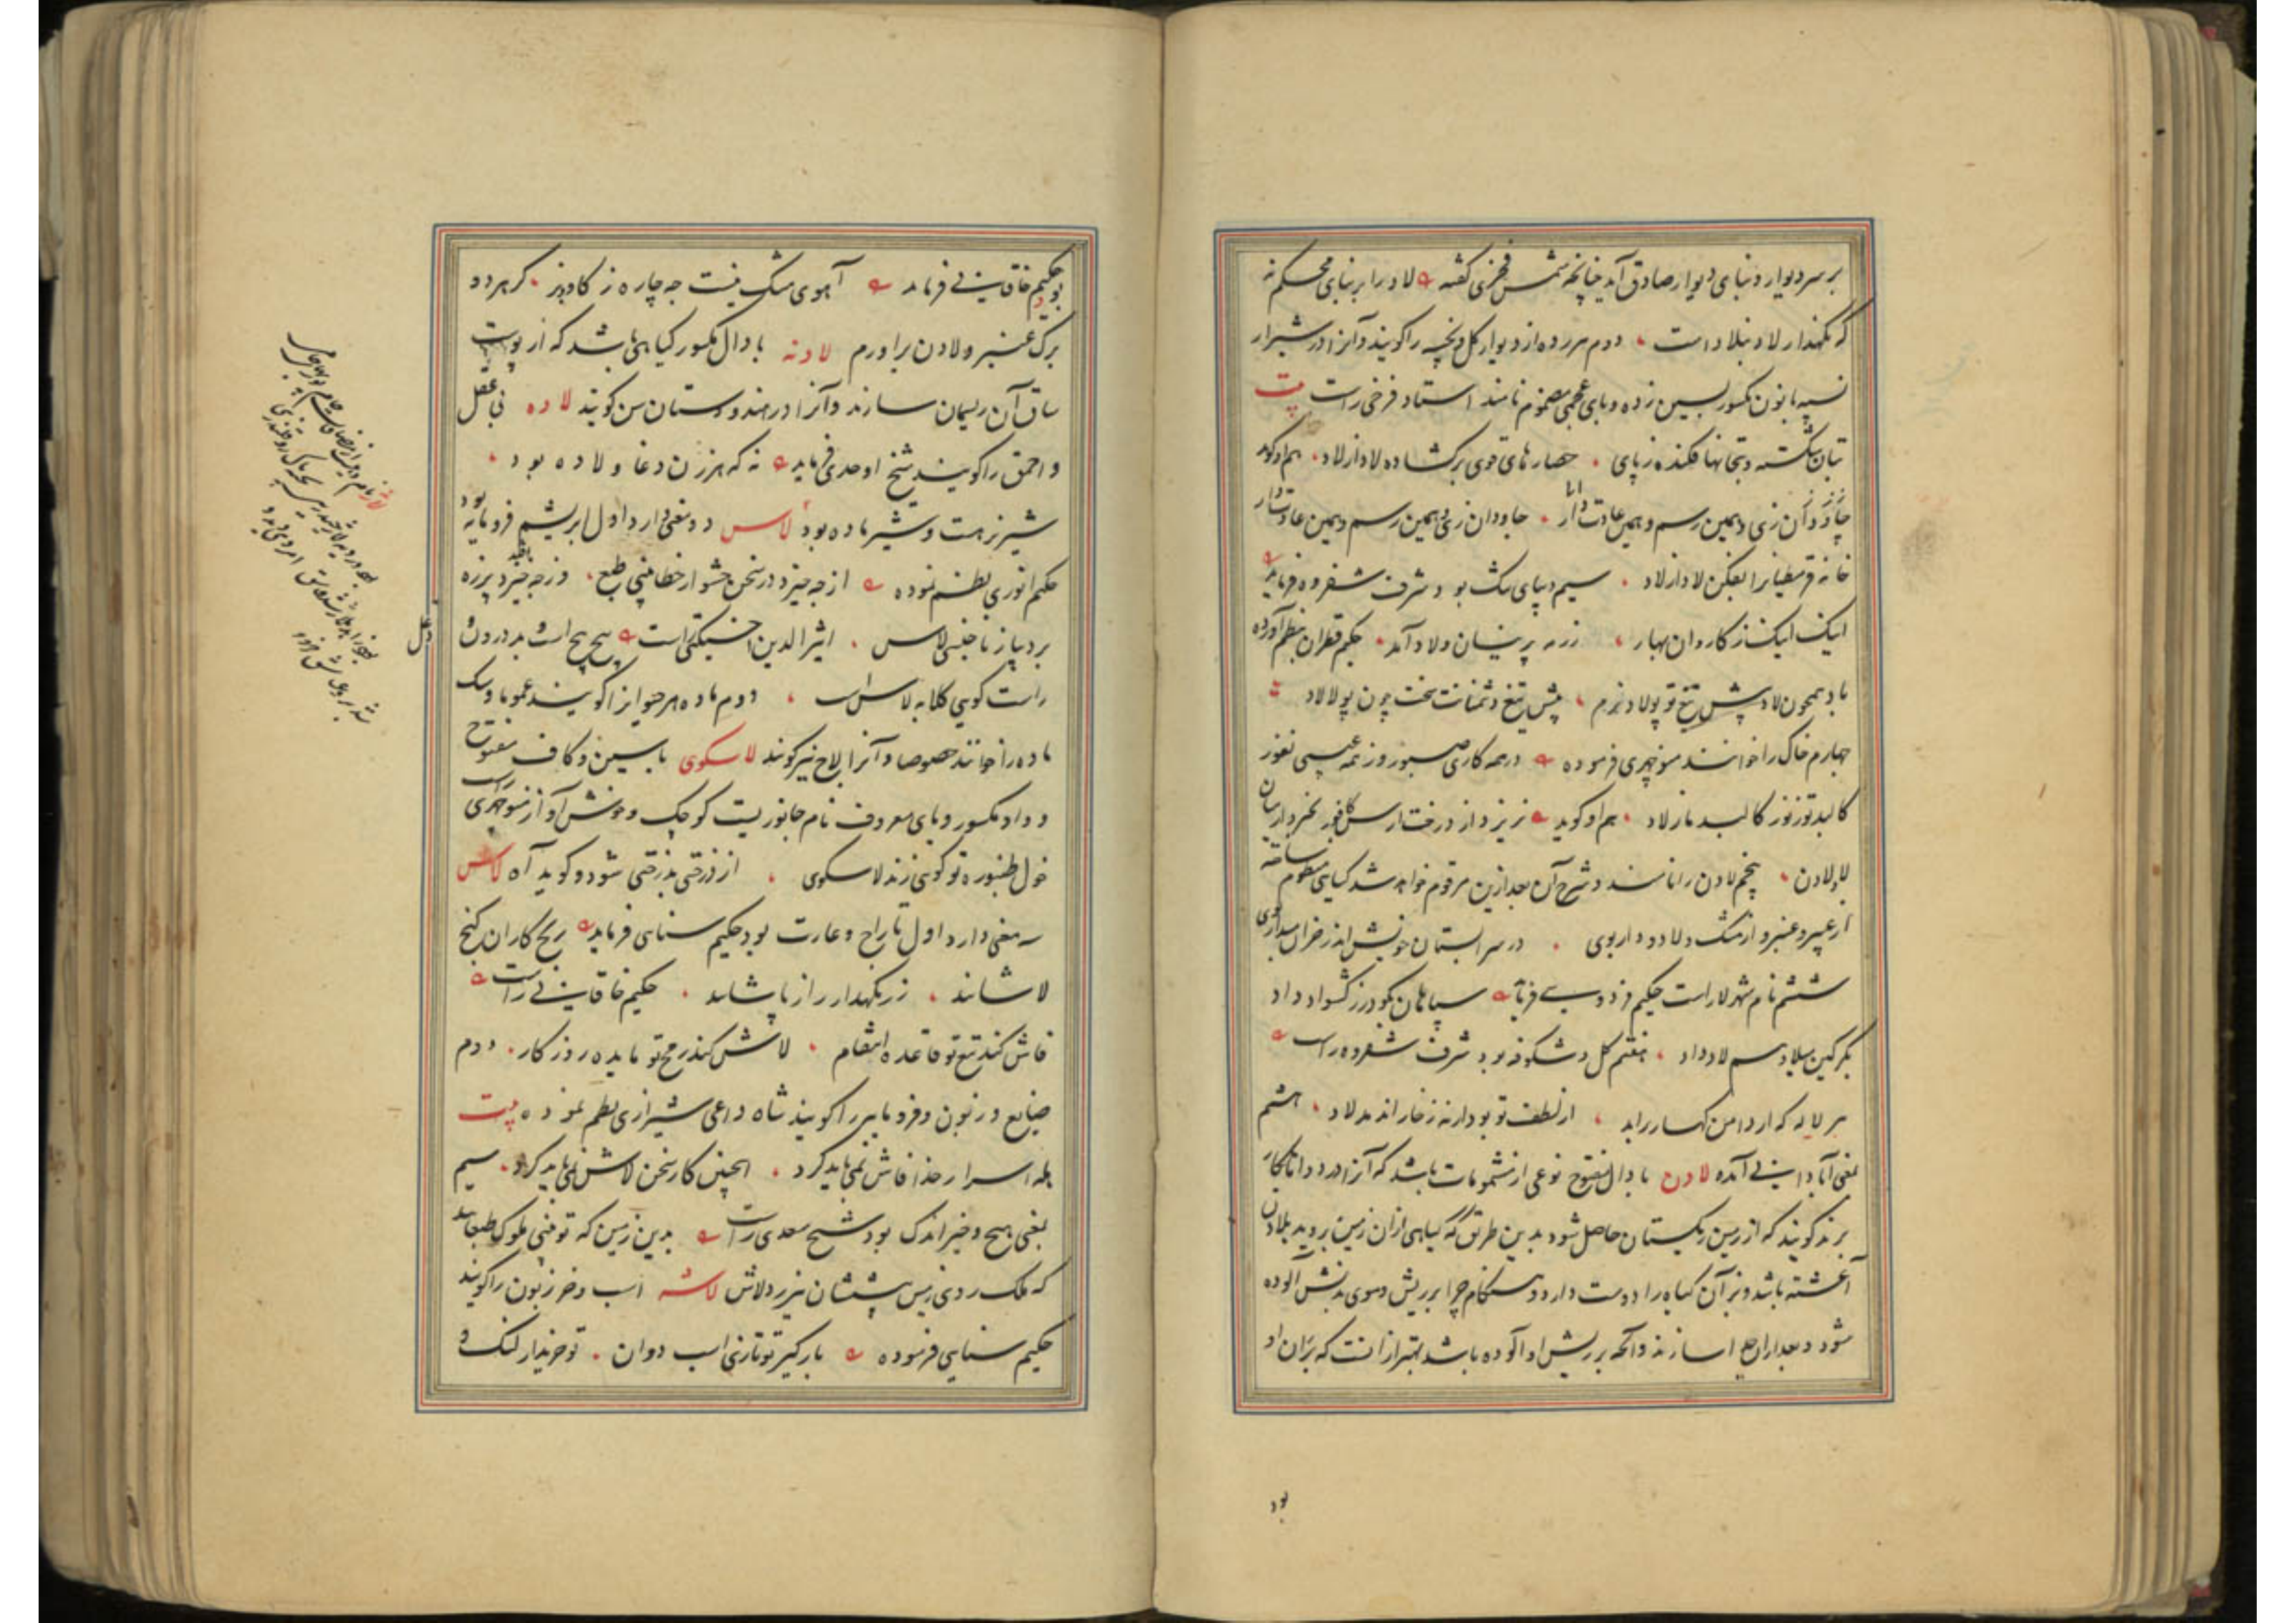 بر سر دیوار و بنای دیوار صادق آید چنانچه شمس فخری گفته لاد را بر بنای محکم نه
که نگهدار لاد بنلاد است دوم هر رده از دیوار گل و نخچه را گویند و آنرا در شیراز
نسپه با نون مکسور بسین زده و بای عجمی مضموم نامند استاد فرخی راست بیت
بتان شکسته و بتخانها فکنده ز پای حصارهای قوی برگشاده لاد از لاد هم او گوید
جاودان زی و همین رسم و همین عادت دار
خانه قرمطیانرا بفکن لاد از لاد سیم دیبای تنک بود شرف شفروه فرماید
اینک اینک ز کاروان بهار زره پرنیان و لاد آمد حکیم قطران بنظم آورده
باد همچون لاد پیش تیغ تو پولاد نرم پیش تیغ دشمنانت سخت چون پولاد لاد
چهارم خاک را خوانند منوچهری فرموده در همه کاری صبور وز همه عیبی نفور
کالبد تو ز نور کالبد ما ز لاد هم او گوید نریزد از درخت ارس کافور نخیزد از میان
لاد لادن پنجم لادن را نامند و شرح آن بعد ازین مرقوم خواهد شد کیابی منظوم ساخته
از عبیر و عنبر و از مشک و لاد و دار بوی در سرابستان خویش اندر خزان
ششم نام شهر لار است حکیم فردوسی فرماید سپاهان بگودرز گشواد داد
بگرگین میلاد هم لاد داد هفتم گل و شکوفه بود شرف شفروه راست
هر لاله که از دامن کهسار براید از لطف تو بو دارد نه زخار اندمد لاد هشتم
بمعنی آبادانی آمده لادن با دال مفتوح نوعی از مشمومات باشد که آنرا در دواها بکار
برند گویند که از زمین ریگستان حاصل شود بدین طریق که گیاهی ازان زمین بروید بلادن
آغشته باشد و بز آن گیاه را دوست دارد و هنگام چرا بر ریش و موی بدنش آلوده
شود و بعد ازان جدا سازند و آنچه بر ریش او آلوده باشد بهتر ازانست که بر ان او
بود
بود حکیم خاقانی فرماید آهوی مشک نیست چه چاره ز گاو و بز گر هر دو
برگ عنبر و لادن براورم لادنه با دال مکسور گیاهی باشد که از پوست
ساق آن ریسمان سازند و آنرا در هندوستان سن گویند لاده بی عقل
و احمق را گویند شیخ اوحدی فرماید نه که هر زن دغا و لاده بود
شیر نر هست و شیر ماده بود لاس دو معنی دارد اول ابریشم فرومایه بود
حکیم انوری بنظم نموده از چه خیزد در سخن حشو از خطا بینی طبع وز چه خیزد پرزه
بر دیبا ز ناجنسی لاس اثیرالدین اخسیکتی راست پیچ پیچ است بدرون دغل
راست گویی کلابه لاس است دوم ماده هر حیوانرا گویند عموما و سگ
ماده را خوانند خصوصا و آنرا لاج نیز گویند لاسکوی با سین و کاف مفتوح
و واو مکسور و یای معروف نام جانوریست کوچک و خوش آواز منوچهری راست
خول طنبوره تو گویی زند لاسکوی از درختی بدرختی شود و گوید آه لاش
سه معنی دارد اول تاراج و غارت بود حکیم سنایی فرماید رنج کاران گنج
لاشانند زر نگهدار زر پاشانند حکیم خاقانی راست
فاش کند تیغ تو قاعده انتقام لاش کند رمح تو مایده روزگار دوم
ضایع و زبون و فرومایه را گویند شاه داعی شیرازی بنظم نموده بیت
بله اسرار خدا فاش نمی باید کرد اینچنین کار سخن لاش نمی باید کرد سیم
بمعنی هیچ و خیر اندک بود شیخ سعدی راست بدین زمین که تو بینی ملوک طبعانند
که ملک روی زمین پیششان نیرزد لاش لاشه اسب و خر زبون را گویند
حکیم سنایی فرموده بارگیر تو تازی اسب دوان تو خریدار لنگ و